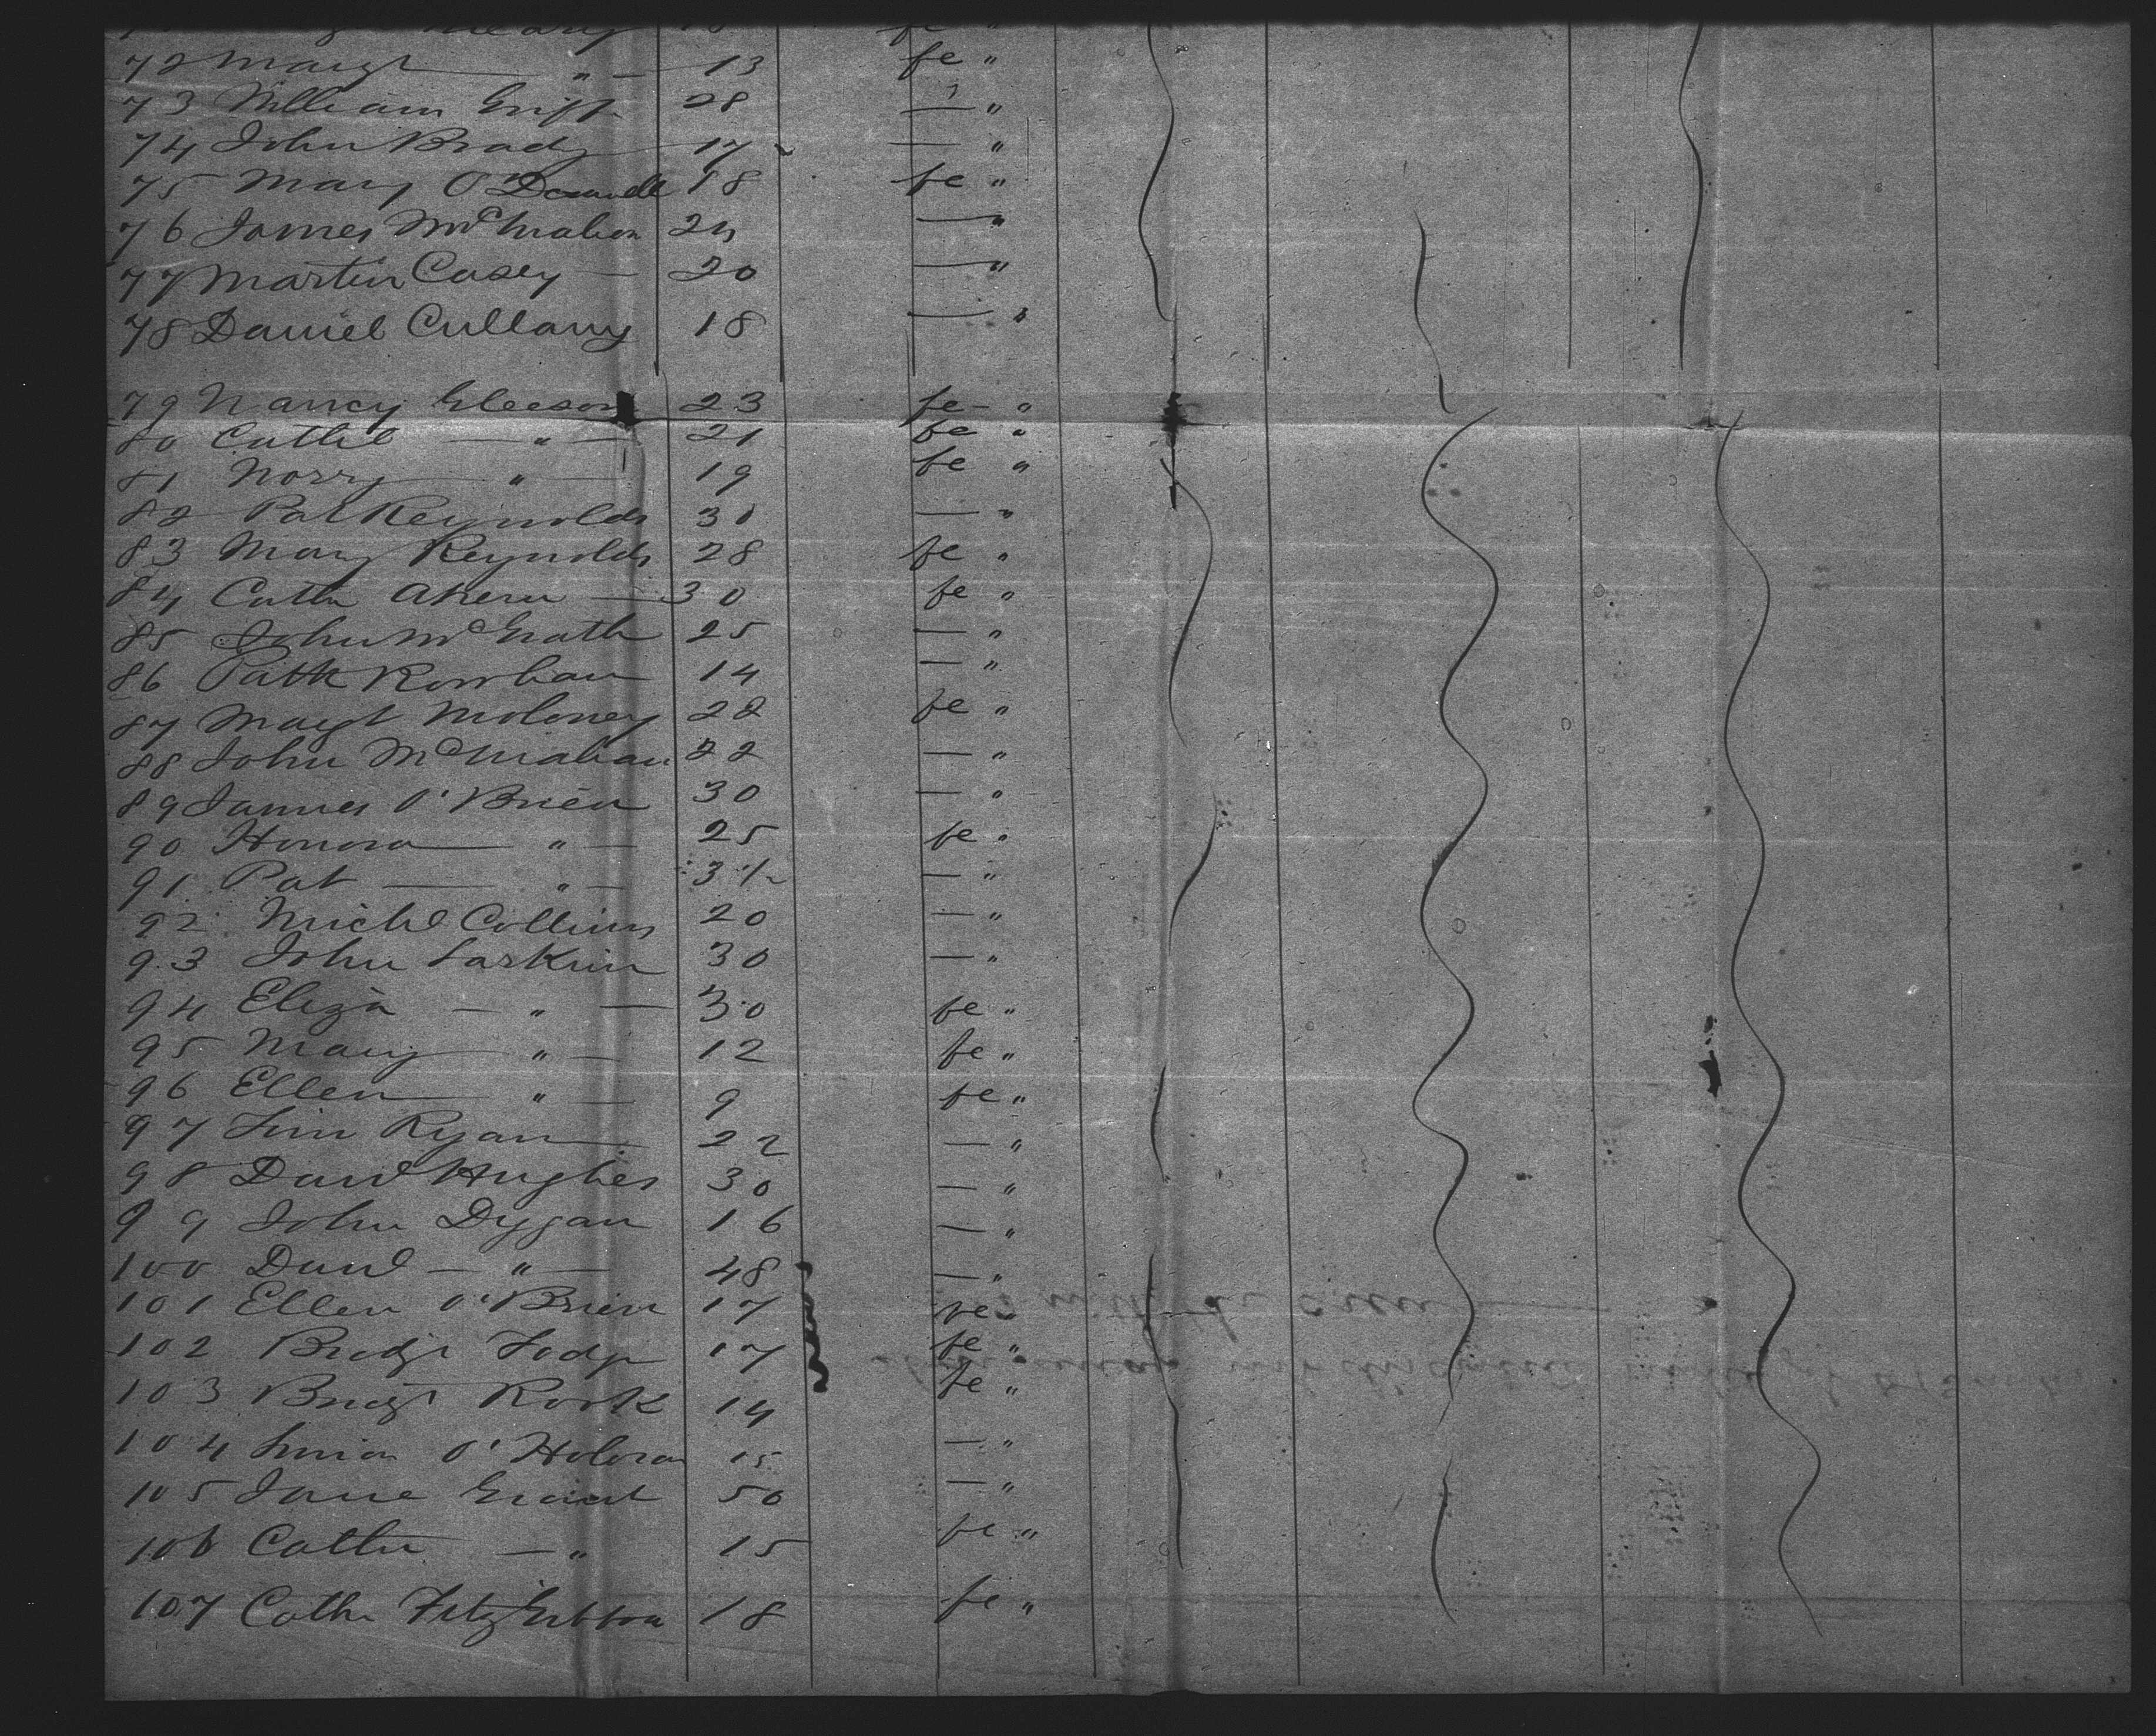 72 Margt " 13 fe "
73 William Griff 28 — "
74 John Brady 17 — "
75 Mary O'Donnell 18 fe "
76 James McMahon 24 — "
77 Martin Casey — 20 — "
78 Daniel Cullany 18 — "
79 Nancy Gleeson 23 fe "
80 Cathe — " — 21 fe "
81 Norry " — 19 fe "
82 Pat Reynolds 30 — "
83 Mary Reynolds 28 fe "
84 Cathn Ahern — 30 fe "
85 John McGrath 25 — "
86 Patk Rowhan 14 — "
87 Margt Moloney 22 fe "
88 John McMahan 22 — "
89 James O'Brien 30 — "
90 Honora — " — 25 fe "
91 Pat — " — — "
92 Michl Collins 20 — "
93 John Larkin 30 — "
94 Eliza — " — 30 fe "
95 Mary " — 12 fe "
96 Ellen — " — 9 fe "
97 Tim Ryan 22 — "
98 Danl Hughes 30 — "
99 John Duggan 16 — "
100 Danl — " — 48 — "
101 Ellen O'Brien 17 fe "
102 Bridgt 17 fe "
103 Bridgt Rork 14 fe "
104 O'Holoran 15 — "
105 Grant 50 — "
106 Cathn — " 15 fe "
107 Cathn FitzGibbon 18 fe "